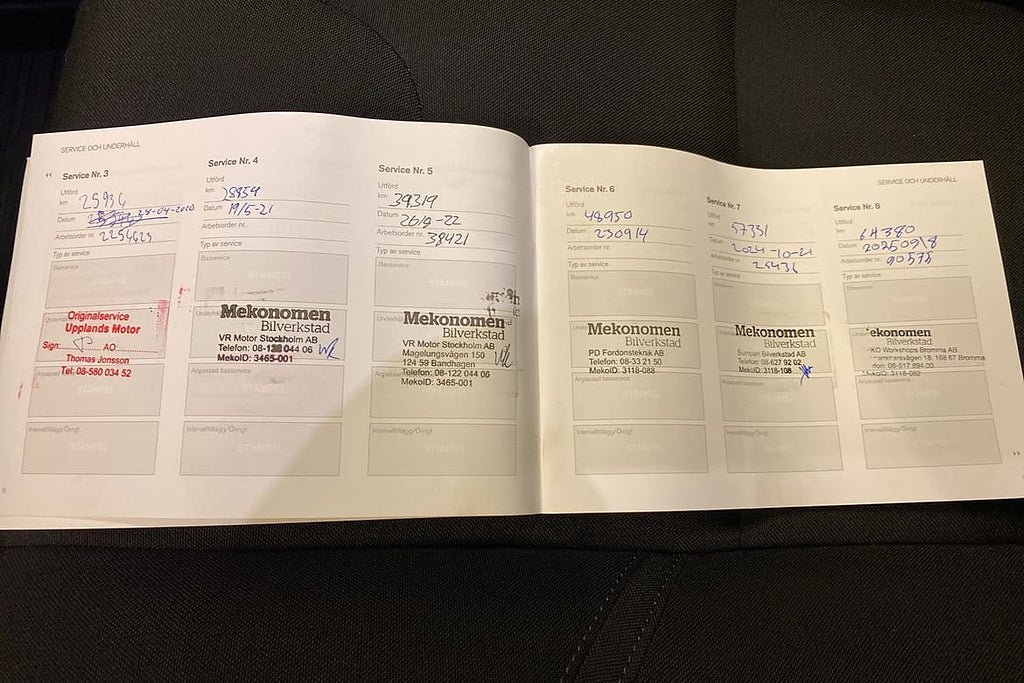 SERVICE OCH UNDERHÅLL
Service Nr. 3
Utförd
km 25936
Datum 28-04-2020
Arbetsorder nr. 2256625
Typ av service
Basservice
STÄMPEL
Originalservice
Upplands Motor
Sign: AO
Thomas Jonsson
Tel: 08-580 034 52
Anpassad basservice
STÄMPEL
Intervalltillägg/Övrigt
STÄMPEL
Service Nr. 4
Utförd
km 28859
Datum 19/5-21
Arbetsorder nr.
Typ av service
Basservice
STÄMPEL
Mekonomen
Bilverkstad
VR Motor Stockholm AB
Telefon: 08-122 044 06
MekoID: 3465-001
Anpassad basservice
STÄMPEL
Intervalltillägg/Övrigt
STÄMPEL
Service Nr. 5
Utförd
km 39319
Datum 26/9-22
Arbetsorder nr. 38421
Typ av service
Basservice
STÄMPEL
Mekonomen
Bilverkstad
VR Motor Stockholm AB
Magelungsvägen 150
124 59 Bandhagen
Telefon: 08-122 044 06
MekoID: 3465-001
Anpassad basservice
STÄMPEL
Intervalltillägg/Övrigt
STÄMPEL
8
Service Nr. 6
Utförd
km 48950
Datum 230914
Arbetsorder nr.
Typ av service
Basservice
STÄMPEL
Mekonomen
Bilverkstad
PD Fordonsteknik AB
Telefon: 08-33 21 50
MekoID: 3118-088
Anpassad basservice
STÄMPEL
Intervalltillägg/Övrigt
STÄMPEL
Service Nr. 7
Utförd
km 57331
Datum 2024-10-21
Arbetsorder nr.
Typ av service
Basservice
STÄMPEL
Mekonomen
Bilverkstad
Sumpan Bilverkstad AB
Telefon: 08-627 92 02
MekoID: 3118-108
Anpassad basservice
STÄMPEL
Intervalltillägg/Övrigt
STÄMPEL
SERVICE OCH UNDERHÅLL
Service Nr. 8
Utförd
km 64380
Datum 20250918
Arbetsorder nr. 90578
Typ av service
Basservice
STÄMPEL
ekonomen
Bilverkstad
KO Workshops Bromma AB
18, 168 67 Bromma
fon: 08-517 894 00
MekoID: 3118-082
Anpassad basservice
STÄMPEL
Intervalltillägg/Övrigt
STÄMPEL